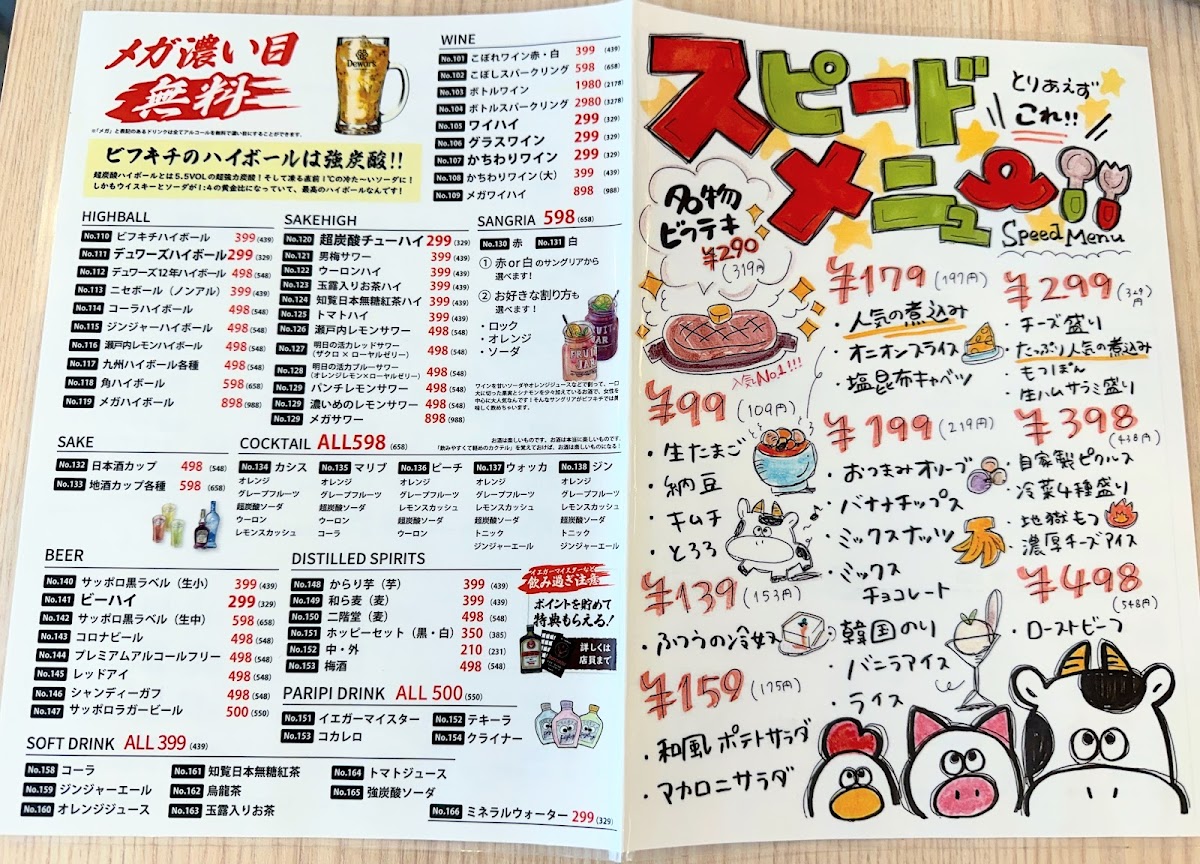 メガ濃い目
無料
※「メガ」と表記のあるドリンクは全てアルコールを無料で濃い目にすることができます。
Dewar's
ビフキチのハイボールは強炭酸!!
超炭酸ハイボールとは5.5VOLの超強力炭酸！そして凍る直前1℃の冷た〜いソーダに！
しかもウイスキーとソーダが1:4の黄金比になっていて、最高のハイボールなんです！
WINE
No.101 こぼれワイン赤・白 399 (439)
No.102 こぼしスパークリング 598 (658)
No.103 ボトルワイン 1980 (2178)
No.104 ボトルスパークリング 2980 (3278)
No.105 ワイハイ 299 (329)
No.106 グラスワイン 299 (329)
No.107 かちわりワイン 299 (329)
No.108 かちわりワイン(大) 399 (439)
No.109 メガワイハイ 898 (988)
HIGHBALL
No.110 ビフキチハイボール 399 (439)
No.111 デュワーズハイボール 299 (329)
No.112 デュワーズ12年ハイボール 498 (548)
No.113 ニセボール（ノンアル） 399 (439)
No.114 コーラハイボール 498 (548)
No.115 ジンジャーハイボール 498 (548)
No.116 瀬戸内レモンハイボール 498 (548)
No.117 九州ハイボール各種 498 (548)
No.118 角ハイボール 598 (658)
No.119 メガハイボール 898 (988)
SAKEHIGH
No.120 超炭酸チューハイ 299 (329)
No.121 男梅サワー 399 (439)
No.122 ウーロンハイ 399 (439)
No.123 玉露入りお茶ハイ 399 (439)
No.124 知覧日本無糖紅茶ハイ 399 (439)
No.125 トマトハイ 399 (439)
No.126 瀬戸内レモンサワー 498 (548)
No.127 明日の活力レッドサワー
(ザクロ × ローヤルゼリー) 498 (548)
No.128 明日の活力ブルーサワー
(オレンジレモン×ローヤルゼリー) 498 (548)
No.129 パンチレモンサワー 498 (548)
No.129 濃いめのレモンサワー 498 (548)
No.129 メガサワー 898 (988)
SANGRIA 598 (658)
No.130 赤 No.131 白
① 赤or白のサングリアから
選べます！
② お好きな割り方も
選べます！
・ロック
・オレンジ
・ソーダ
ワインを甘いソーダやオレンジジュースなどで割って、一口
大に切った果実とシナモンを少々加えているお酒で、女性を
中心に大人気なんです！そんなサングリアがビフキチでは美
味しく飲めちゃいます。
SAKE
No.132 日本酒カップ 498 (548)
No.133 地酒カップ各種 598 (658)
COCKTAIL ALL598 (658)
お酒は楽しいものです。お酒は本当に楽しいものです。
「飲みやすくて軽めのカクテル」を覚えておけば、お酒は楽しいものになる！
No.134 カシス
オレンジ
グレープフルーツ
超炭酸ソーダ
ウーロン
レモンスカッシュ
No.135 マリブ
オレンジ
グレープフルーツ
超炭酸ソーダ
ウーロン
コーラ
No.136 ピーチ
オレンジ
グレープフルーツ
レモンスカッシュ
超炭酸ソーダ
ウーロン
No.137 ウォッカ
オレンジ
グレープフルーツ
レモンスカッシュ
超炭酸ソーダ
トニック
ジンジャーエール
No.138 ジン
オレンジ
グレープフルーツ
レモンスカッシュ
超炭酸ソーダ
トニック
ジンジャーエール
BEER
No.140 サッポロ黒ラベル（生小） 399 (439)
No.141 ビーハイ 299 (329)
No.142 サッポロ黒ラベル（生中） 598 (658)
No.143 コロナビール 498 (548)
No.144 プレミアムアルコールフリー 498 (548)
No.145 レッドアイ 498 (548)
No.146 シャンディーガフ 498 (548)
No.147 サッポロラガービール 500 (550)
DISTILLED SPIRITS
No.148 からり芋（芋） 399 (439)
No.149 和ら麦（麦） 399 (439)
No.150 二階堂（麦） 498 (548)
No.151 ホッピーセット（黒・白） 350 (385)
No.152 中・外 210 (231)
No.153 梅酒 498 (548)
イエガーマイスターなど
飲み過ぎ注意
ポイントを貯めて
特典もらえる！
詳しくは
店員まで
PARIPI DRINK ALL 500 (550)
No.151 イエガーマイスター No.152 テキーラ
No.153 コカレロ No.154 クライナー
SOFT DRINK ALL 399 (439)
No.158 コーラ No.161 知覧日本無糖紅茶 No.164 トマトジュース
No.159 ジンジャーエール No.162 烏龍茶 No.165 強炭酸ソーダ
No.160 オレンジジュース No.163 玉露入りお茶 No.166 ミネラルウォーター 299 (329)
スピード
メニュー!!
とりあえず
これ!!
Speed Menu
名物
ビフテキ
¥290
(319円)
人気No.1!!!
¥99 (109円)
・生たまご
・納豆
・キムチ
・とろろ
¥139 (153円)
・ふつうの冷奴
¥159 (175円)
・和風ポテトサラダ
・マカロニサラダ
¥179 (197円)
・人気の煮込み
・オニオンスライス
・塩昆布キャベツ
¥199 (219円)
・おつまみオリーブ
・バナナチップス
・ミックスナッツ
・ミックス
チョコレート
・韓国のり
・バニラアイス
・ライス
¥299 (329円)
・チーズ盛り
・たっぷり人気の煮込み
・もつぽん
・生ハムサラミ盛り
¥398 (438円)
・自家製ピクルス
・冷菜4種盛り
・地獄もつ
・濃厚チーズアイス
¥498 (548円)
・ローストビーフ